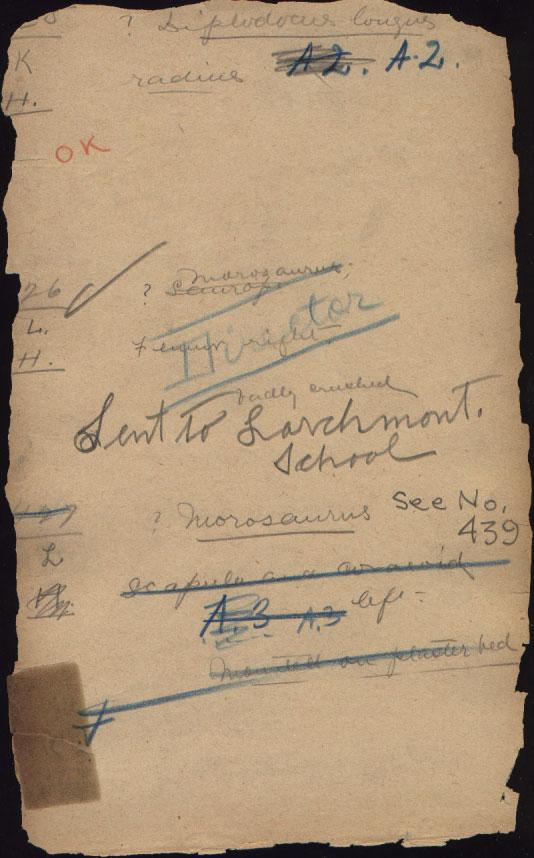 ? Diplodocus longus
K
radius A2. A.2.
H.
OK
26
? Morosaurus,
L.
Director
H.
Femur right.
badly crushed
Sent to Larchmont.
School
? Morosaurus See No.
439
L
scapula and coracoid
A.3 A.3 left.
Mounted on plaster bed